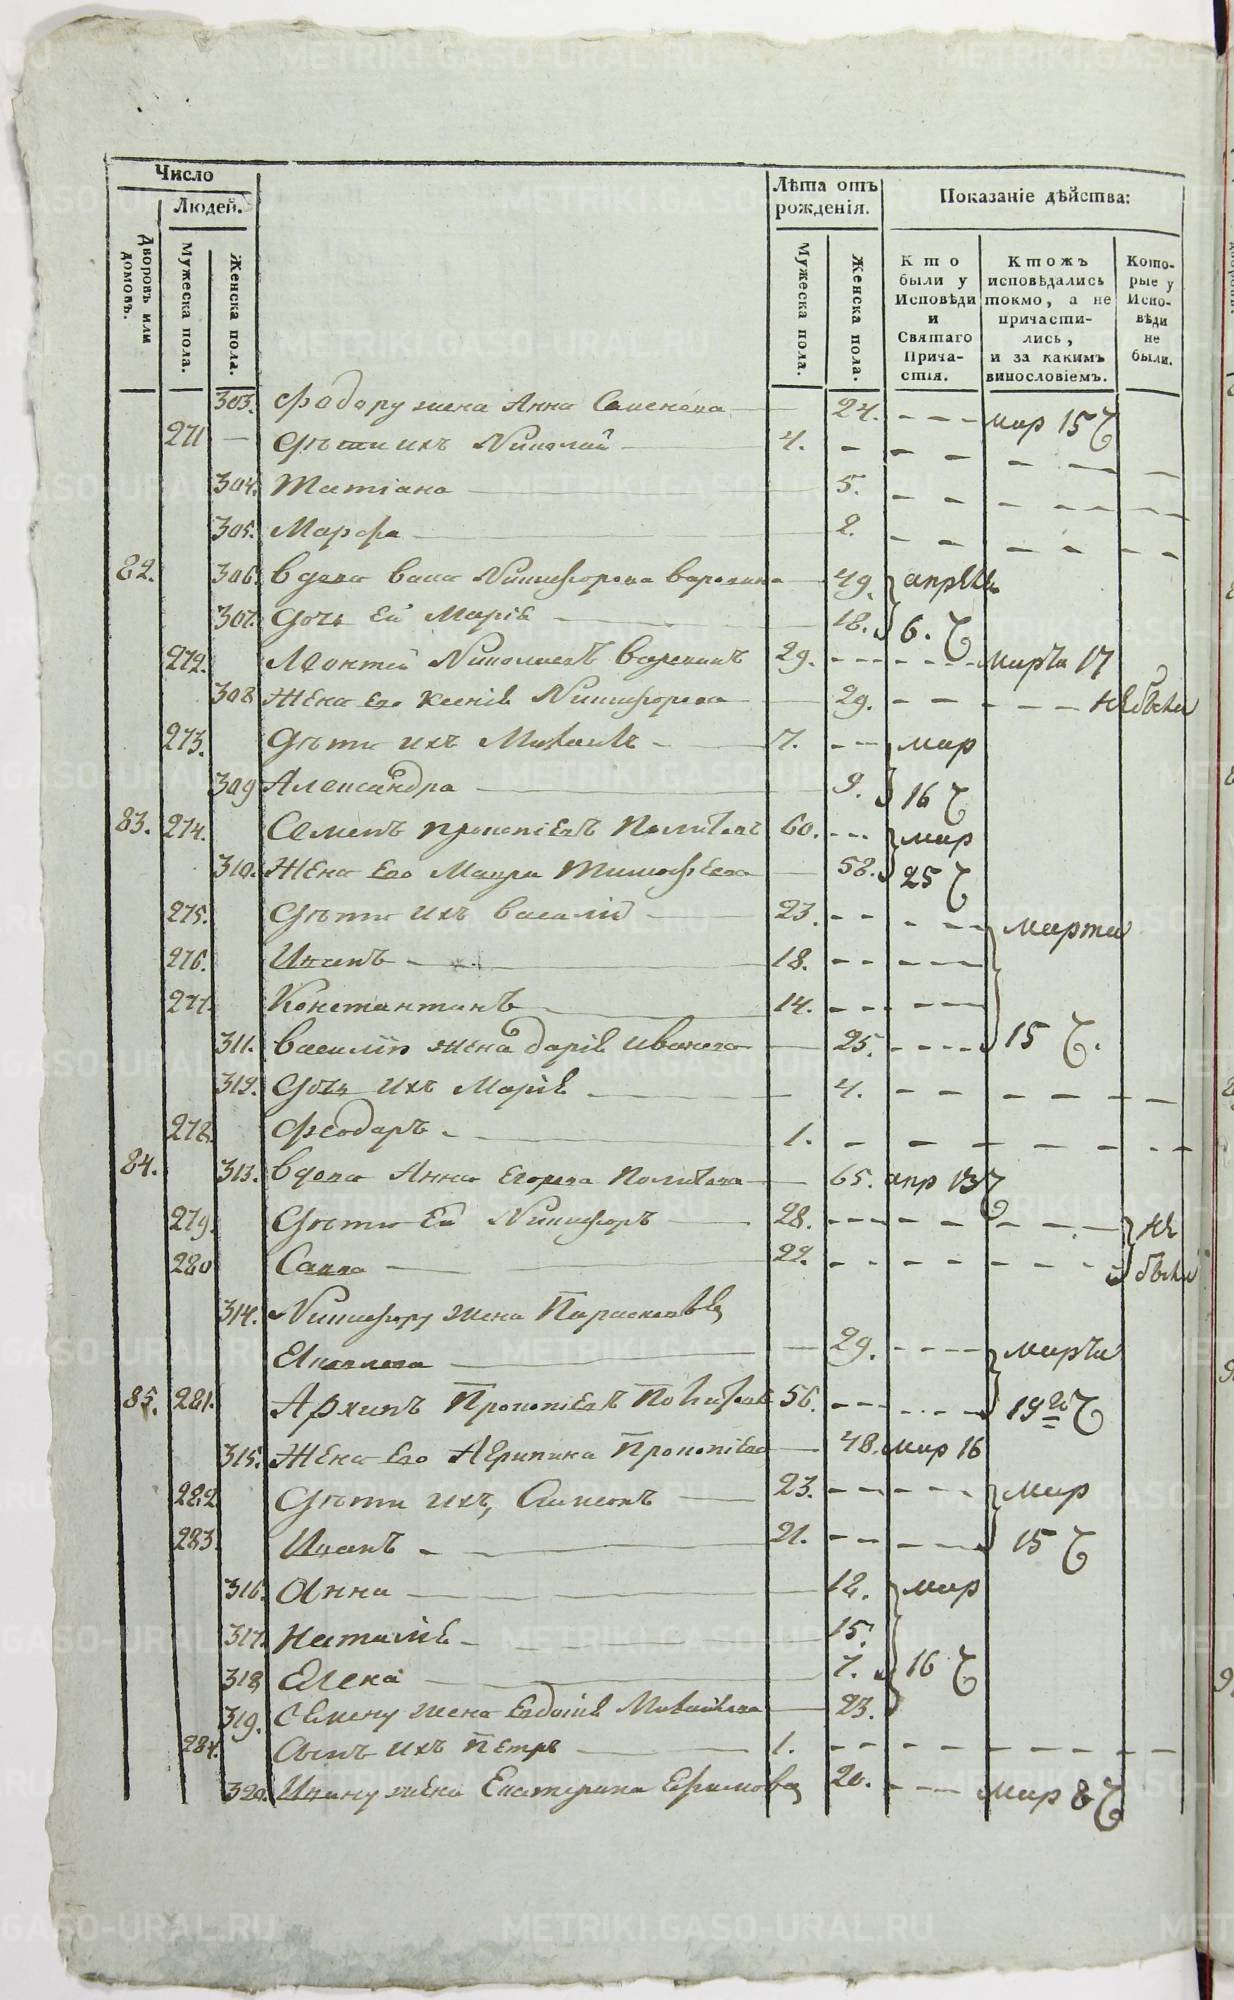 Число
Людей.
Дворовъ или домовъ.
Мужеска пола.
Женска пола.
Лѣта отъ рожденія.
Мужеска пола.
Женска пола.
Показаніе дѣйства:
Кто были у Исповѣди и Святаго Прича-стія.
Ктожъ исповѣдались токмо, а не причасти-лись, и за какимъ винословіемъ.
Кото-рые у Испо-вѣди не были.
303. Фадору жена Анна Семенова 24. мар 15
271 Дѣти ихъ Николай 4.
304. Татіана 5.
305. Марфа 2.
82. 306. вдова Никифорова 49. апрѣля
307. Дочь Ей Марія 18. 6.
272. Леонтей Николаевъ 29. марта 17
308 Жена Его Ксенія Никифорова 29. не были
273. Дѣти ихъ Михаилъ 7. мар
309 Александра 9. 16
83. 274. Семенъ Прокопіевъ 60. мар
310. Жена Его Мавра Тимофѣева 58. 25
275. Дѣти ихъ Василій 23. марта
276. Иванъ 18.
277. Константинъ 14.
311. Василію жена Дарія Иванова 25. 15
312. Дочь ихъ Марія 4.
278. Феодоръ 1.
84. 313. вдова Анна Егорова 65. апр 13
279. Дѣти Ей Никифоръ 28. не
280 Савва 22. были
314. Никифору жена Параскевья
Яковлева 29. марта
85. 281. Архипъ Прокопіевъ 56. 19
315. Жена Его Агрипина Прокопіева 48. мар 16
282 Дѣти ихъ, Симеонъ 23. мар
283. Иванъ 21. 15
316. Анна 12. мар
317. Наталія 15.
318 Елена 7. 16
319. Семену жена Евдокія Михайлова 23.
284. Сынъ ихъ Петръ 1.
320. Ивану жена Екатерина Ефимова 20. мар 8
METRIKI.GASO-URAL.RU